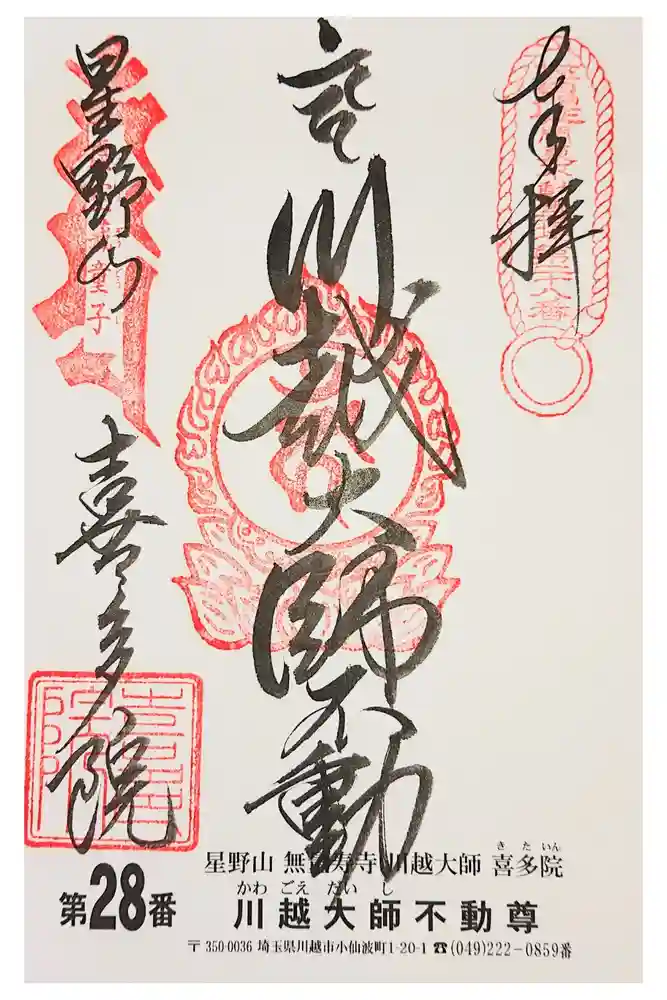 奉拝
川越大師不動
星野山
喜多院
童子
星野山 無量寿寺 川越大師 喜多院
きたいん
第28番
かわごえだいし
川越大師不動尊
〒350-0036 埼玉県川越市小仙波町1-20-1 ☎(049)222-0859番